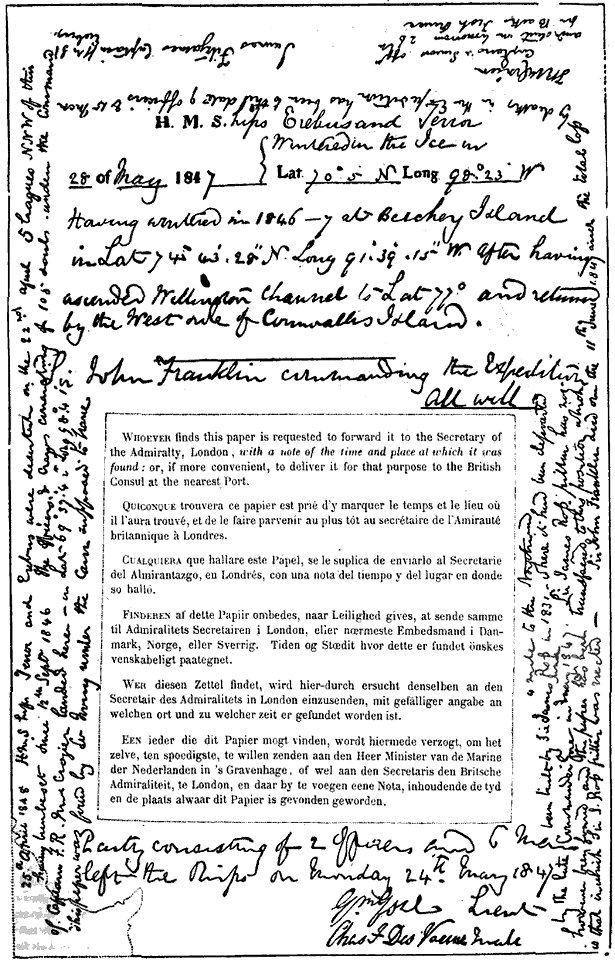 H. M. S. hips Erebus and Terror
Wintered in the Ice in
28 of May 1847 Lat. 70° 5' N Long. 98° 23' W
Having wintered in 1846–7 at Beechey Island
in Lat 74° 43' 28" N. Long 91° 39' 15" W After having
ascended Wellington Channel to Lat 77° and returned
by the West side of Cornwallis Island.
John Franklin commanding the Expedition
All well
WHOEVER finds this paper is requested to forward it to the Secretary of
the Admiralty, London, with a note of the time and place at which it was
found: or, if more convenient, to deliver it for that purpose to the British
Consul at the nearest Port.
QUICONQUE trouvera ce papier est prié d'y marquer le temps et le lieu où
il l'aura trouvé, et de le faire parvenir au plus tôt au secrétaire de l'Amirauté
britannique à Londres.
CUALQUIERA que hallare este Papel, se le suplica de enviarlo al Secretarie
del Almirantazgo, en Londrés, con una nota del tiempo y del lugar en donde
so halló.
FINDEREN af dette Papiir ombedes, naar Leilighed gives, at sende samme
til Admiralitets Secretairen i London, eller nœrmeste Embedsmand i Dan-
mark, Norge, eller Sverrig. Tiden og Stœdit hvor dette er fundet önskes
venskabeligt paategnet.
WER diesen Zettel findet, wird hier-durch ersucht denselben an den
Secretair des Admiralitets in London einzusenden, mit gefälliger angabe an
welchen ort und zu welcher zeit er gefundet worden ist.
EEN ieder die dit Papier mogt vinden, wordt hiermede verzogt, om het
zelve, ten spoedigste, te willen zenden aan den Heer Minister van de Marine
der Nederlanden in 's Gravenhage, of wel aan den Secretaris den Britsche
Admiraliteit, te London, en daar by te voegen eene Nota, inhoudende de tyd
en de plaats alwaar dit Papier is gevonden geworden.
Party consisting of 2 Officers and 6 Men
left the Ships on Monday 24th May 1847
Gm Gore Lieut
Chas F Des Voeux Mate
25th April 1848 H.M. Ships Terror and Erebus were deserted on the 22nd April 5 leagues NNW of this
having been beset since 12th Septr 1846 The Officers & Crews consisting of 105 souls under the Command
of Captain F. R. M. Crozier landed here – in Lat 69° 37' 42" Long 98° 41'
This paper was found by Lt Irving under the Cairn supposed to have
4 miles to the Northward
been built by Sir James Ross in 1831 – where it had been deposited
by the late Commander Gore in June 1847. Sir James Ross' pillar has not
however been found and the paper has been transferred to this position which
is that in which Sir J. Ross pillar was erected – Sir John Franklin died on the 11th June 1847 and the total loss
by deaths in the Expedition has been to this date 9 officers & 15 Men
James Fitzjames Captain HMS Erebus
Captain & Senior Offr
and start on tomorrow 26th
for Backs Fish River